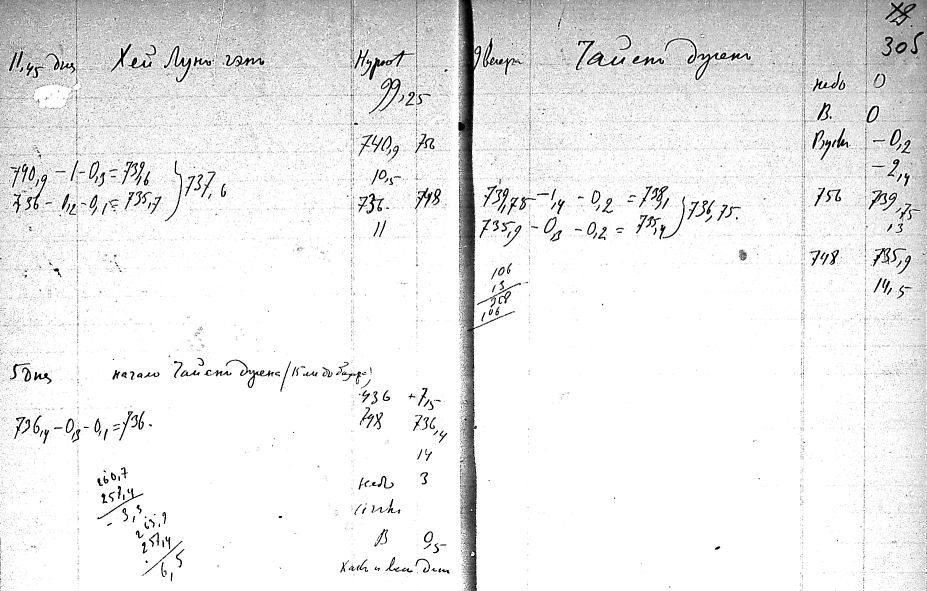 11,45 дня Хей Лунъ гэтъ Hypsot
99,25
740,9 756
740,9 – 1 – 0,3 = 739,6 } 737,6
10,5
736 – 0,2 – 0,1 = 735,7
736. 748
11
5 дня начало Чайсты дугена /15 ли до
436 + 7,5
736,4 – 0,3 – 0,1 = 736.
748 736,4
14
260,7
257,4
– 3,3
небо 3
cirrhi
263,9
257,4
6,5
В 0,5
какъ и
305
9 вечера
небо 0
В. 0
– 0,2
– 2,4
739,75 – 1,4 – 0,2 = 738,1 } 736,75.
756 739,75
13
735,9 – 0,3 – 0,2 = 735,4
748 735,9
14,5
106
13
268
106